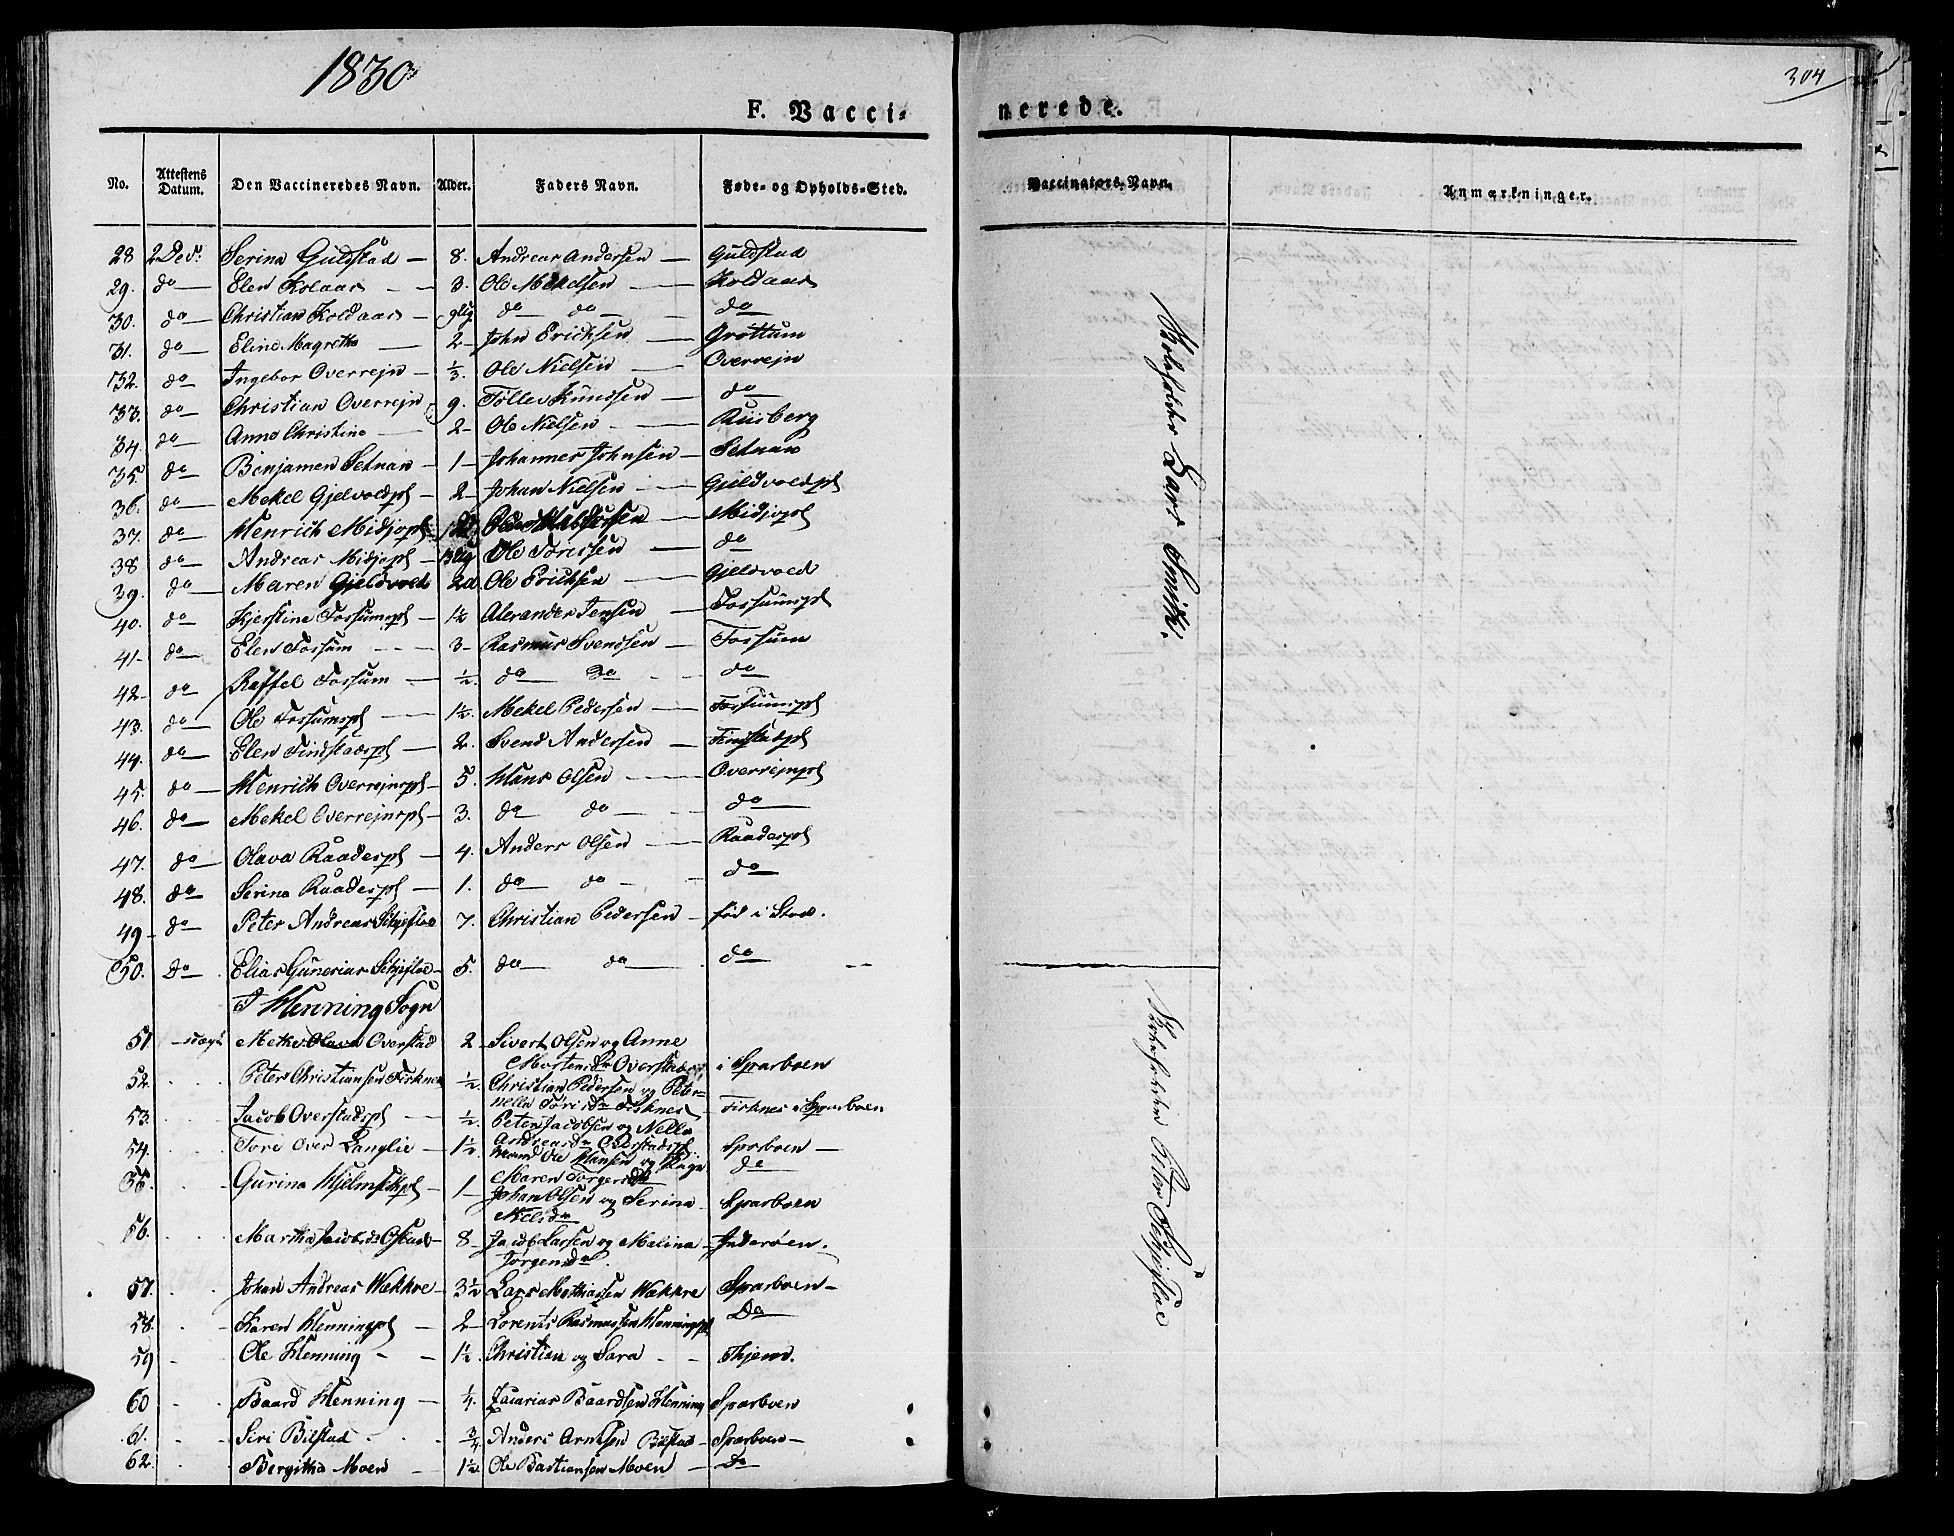 1830
304
F. Vacci-
nerede.
No. Attestens Datum. Den Vaccineredes Navn. Alder. Faders Navn. Føde- og Opholds-Sted. Vaccinators-Navn. Anmærkninger.
28 2 Des: Serina Guldstad 8. Andreas Andersen Guldstad
29. do Elen Kolaas 3. Ole Mekelsen Koldaas
30. do Christian Koldaas do do do
31. do Eline Magretha 2 John Erichsen Grottum
32. do Ingebor Overrejn 1/3. Ole Nielsen Overrejn
33. do Christian Overrejn 9. Tollev Knudsen do
34. do Anne Christine 2 Ole Nielsen Riisberg
35. do Benjamen Setnan 1 Johannes Johnsen Setnan
36. do Mekel Gjelvoldpl 2 Johan Nielsen Gjeldvoldpl
37. do Henrich Midjopl Midjopl
38 do Andreas Midjopl Ole Toressen do
39. do Maren Gjeldvold 2 Ole Erichsen Gjeldvold
40. do Kjerstine Fossumspl 1½ Alexander Jensen Fossumspl
41 do Elen Fossum 3 Rasmus Svendsen Fossum
42 do Raffel Fossum ½. do do do
43. do Ole Fossumspl 1½. Mekel Pedersen Fossumspl
44. do Elen Findstadpl 2. Svend Andersen Findstadpl
45. do Henrich Overrejnspl 5. Hans Olsen Overrejnspl
46. do Mekel Overrejnspl 3. do do do
47. do Olava Raadespl 4. Anders Olsen Raadespl
48. do Serina Raadespl 1. do do do
49 do Peter Andreas Schjefloe 7. Christian Pedersen fød i Stod.
50. Do Elias Gunerius Schjefloe 5. do do do
I Henning Sogn
51 Methe Olava Overstad 2 Sivert Olsen og Anne
Mortensdr Overstad i Sparboen
52. Peter Christiansen Firknes ½. Christian Pedersen og Peter-
nella Torisdr Firknes Firknes i Sparboen
53. Jacob Overstadspl ½. Peter Jacobsen og Nella
Andreasdr Overstadspl Sparboen
54. Tore Over Langlie 1½ Hansen og do
Maren Torgersdr
55. Gurina Hjelmsethpl 1 Johan Olsen og Serina Sparboen
Nielsdr
56. Martha Jacobsdr 8 Jacob Larsen og Malina Inderøen.
Jørgensdr.
57. Johan Andreas Wækkre 3½ Lars Mathiassen Wækkre Sparboen
58. Karen Henningpl 2 Lorents Rasmussen Henningpl Do
59 Ole Henning 1½. Christian og Sara
60 Baard Henning ¼. Zacarias Baardsen Henning Sparboen
61. Siri Bilstad ¾ Anders Arntsen Bilstad Sparboen
62. Bergitha Moen 1½. Ole Bastiansen Moen Do
Skoleholder Lars Smidth.
Skoleholder Peter Schjefloe